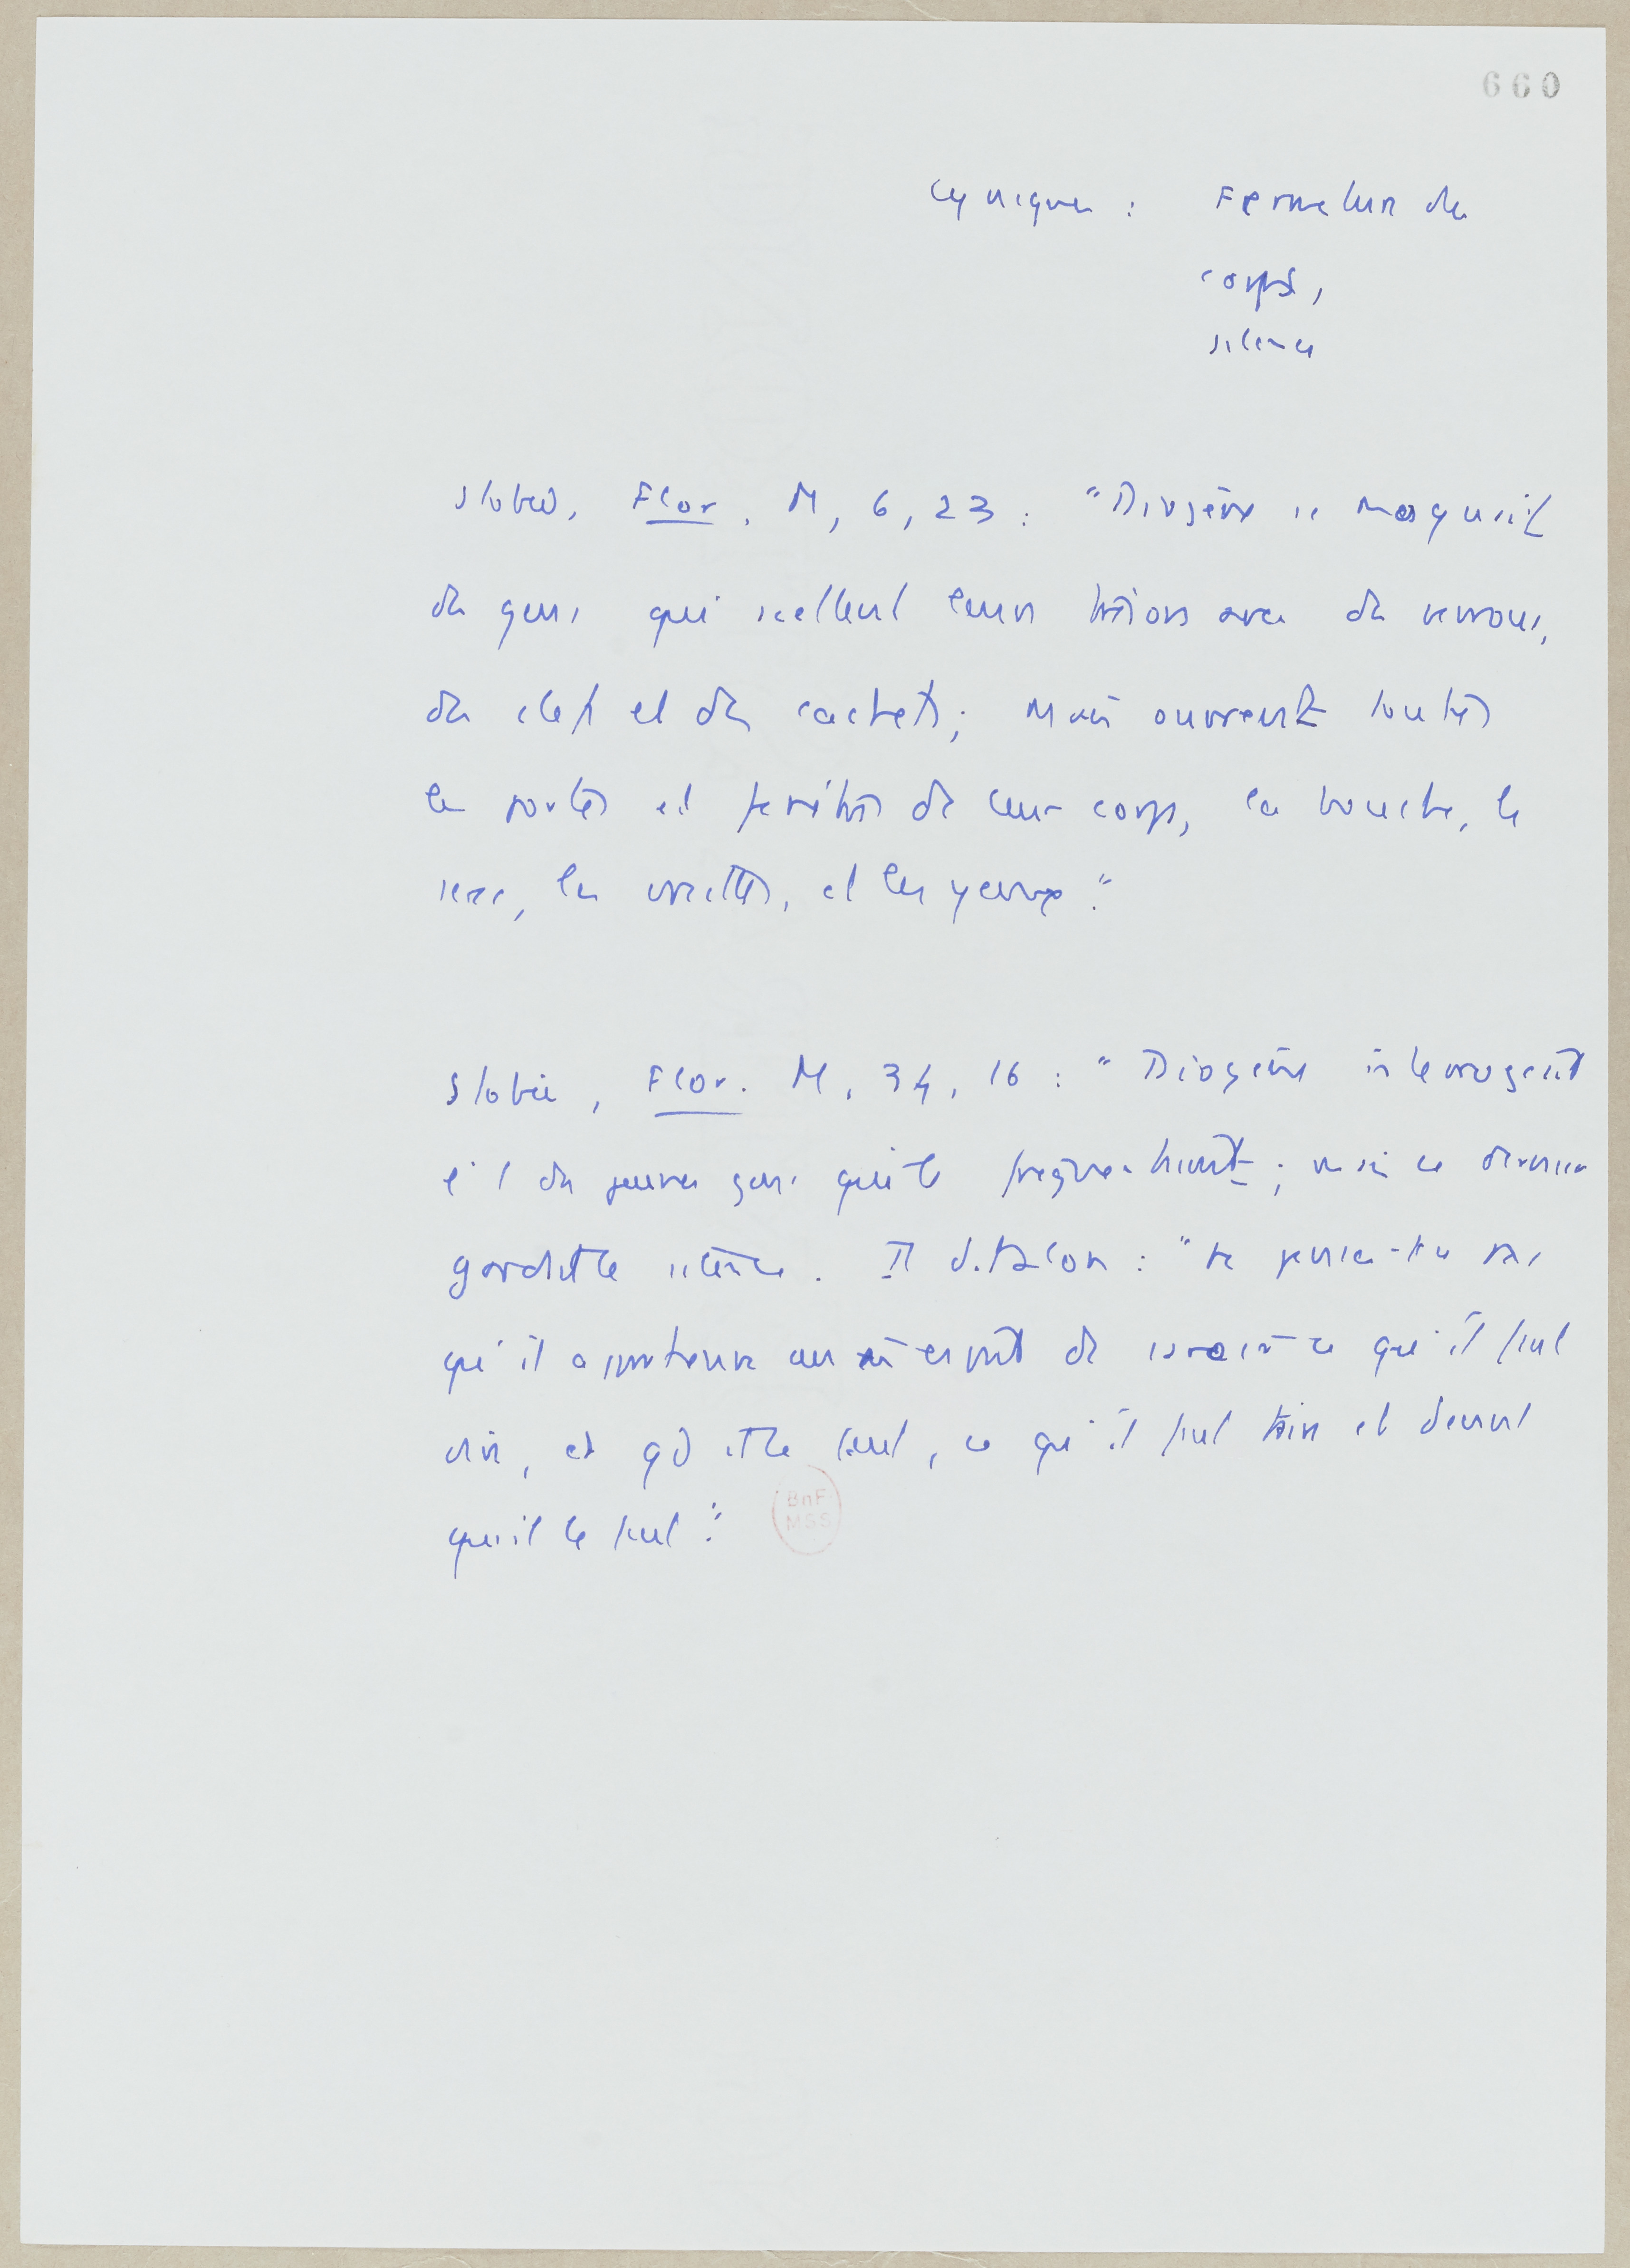 660
Cyniques : Fermeture du
corps,
silence
Stobée, Flor. M, 6, 23 : "Diogène se moquait
des gens qui scellent leurs trésors avec des verrous,
des clefs et des cachets ; mais ouvrent toutes
les portes et fenêtres de leur corps, la bouche, le
sexe, les oreilles, et les yeux".
Stobée, Flor. M, 34, 16 : "Diogène interrogeait
des jeunes gens qui le fréquentaient ; mais ce dernier
gardait le silence. Il dit alors : "ne penses-tu pas
qu'il appartienne au esprit de ce qu'il faut
dire, et qd il le faut, ce qu'il faut taire et devant
qui il le faut".
BnF
MSS